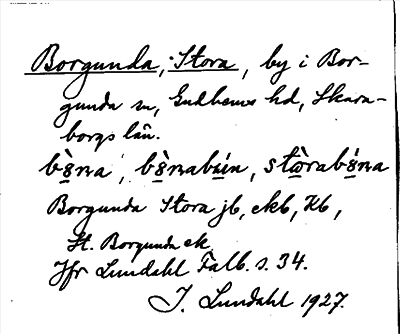 Borgunda, Stora, by i Bor-
gunda sn, Gudhems hd, Skara-
borgs län.
bò̤na, bò̤nabýin, stò̤rabó̤na
Borgunda Stora jb, ekb, Kb,
St. Borgunda ek
Jfr Lundahl Falb. s. 34.
I. Lundahl 1927.